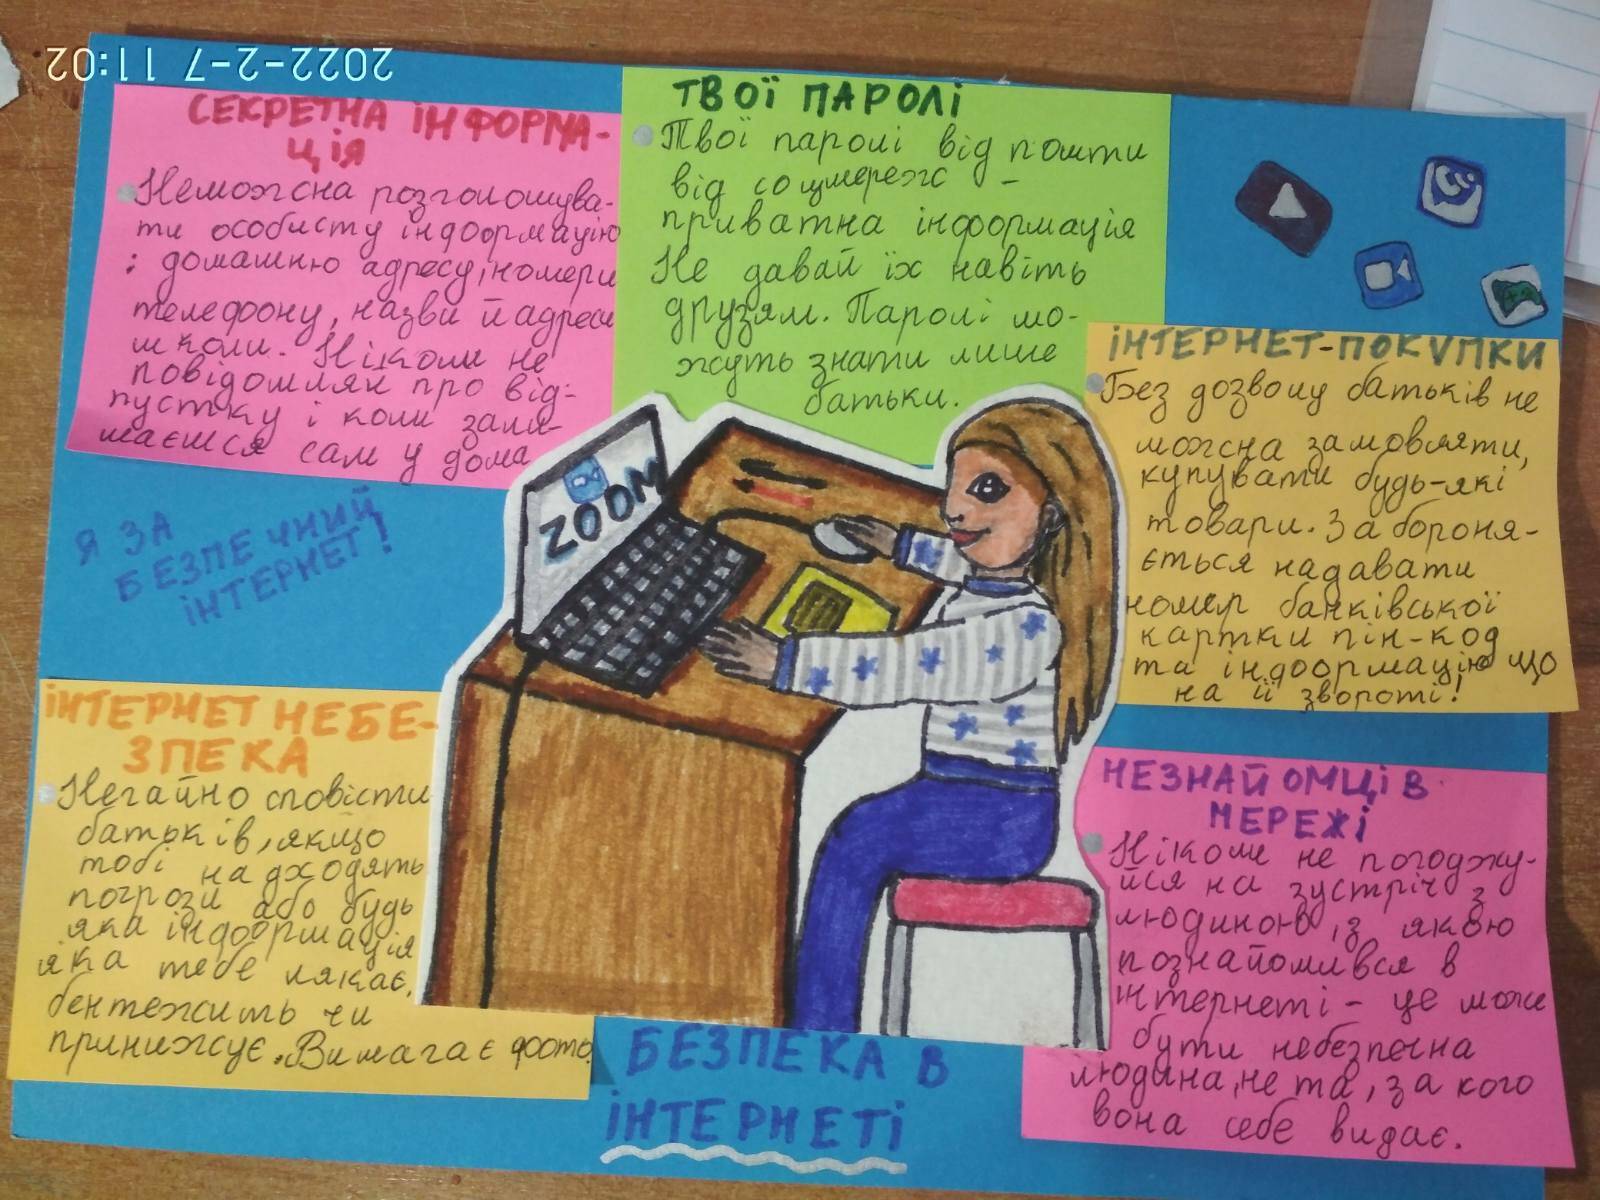 2022-2-7 11:02
СЕКРЕТНА ІНФОРМА-
ЦІЯ
Неможна розголошува-
ти особисту інформацію
: домашню адресу, номери
телефону, назви й адреси
школи. Ніколи не
повідомляй про від-
пустку і коли зали-
шаєшся сам у дома
ТВОЇ ПАРОЛІ
Твої паролі від пошти
від соцмереж -
приватна інформація
Не давай їх навіть
друзям. Паролі мо-
жуть знати лише
батьки.
ІНТЕРНЕТ-ПОКУПКИ
Без дозволу батьків не
можна замовляти,
купувати будь-які
товари. Забороня-
ється надавати
номер банківської
картки пін-код
та інформацію що
на її звороті!
Я ЗА
БЕЗПЕЧНИЙ
ІНТЕРНЕТ!
ZOOM
ІНТЕРНЕТ НЕБЕ-
ЗПЕКА
Негайно сповісти
батьків, якщо
тобі надходять
погрози або будь
яка інформація
яка тебе лякає,
бентежить чи
принижує. Вимагає фото.
НЕЗНАЙОМЦІ В
МЕРЕЖІ
Ніколи не погоджу-
йся на зустріч з
людиною, з якою
познайомився в
інтернеті - це може
бути небезпечна
людина, не та, за кого
вона себе видає.
БЕЗПЕКА В
ІНТЕРНЕТІ